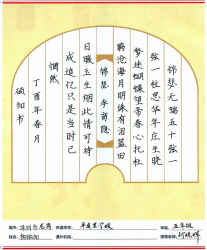 锦瑟无端五十弦一
弦一柱思华年庄生晓
梦迷蝴蝶望帝春心托杜
鹃沧海月明珠有泪蓝田
锦瑟 李商隐
日暖玉生烟此情可待
成追忆只是当时已
惘然
丁酉年春月
硕知书
城市：深圳市龙岗
年级：五年级